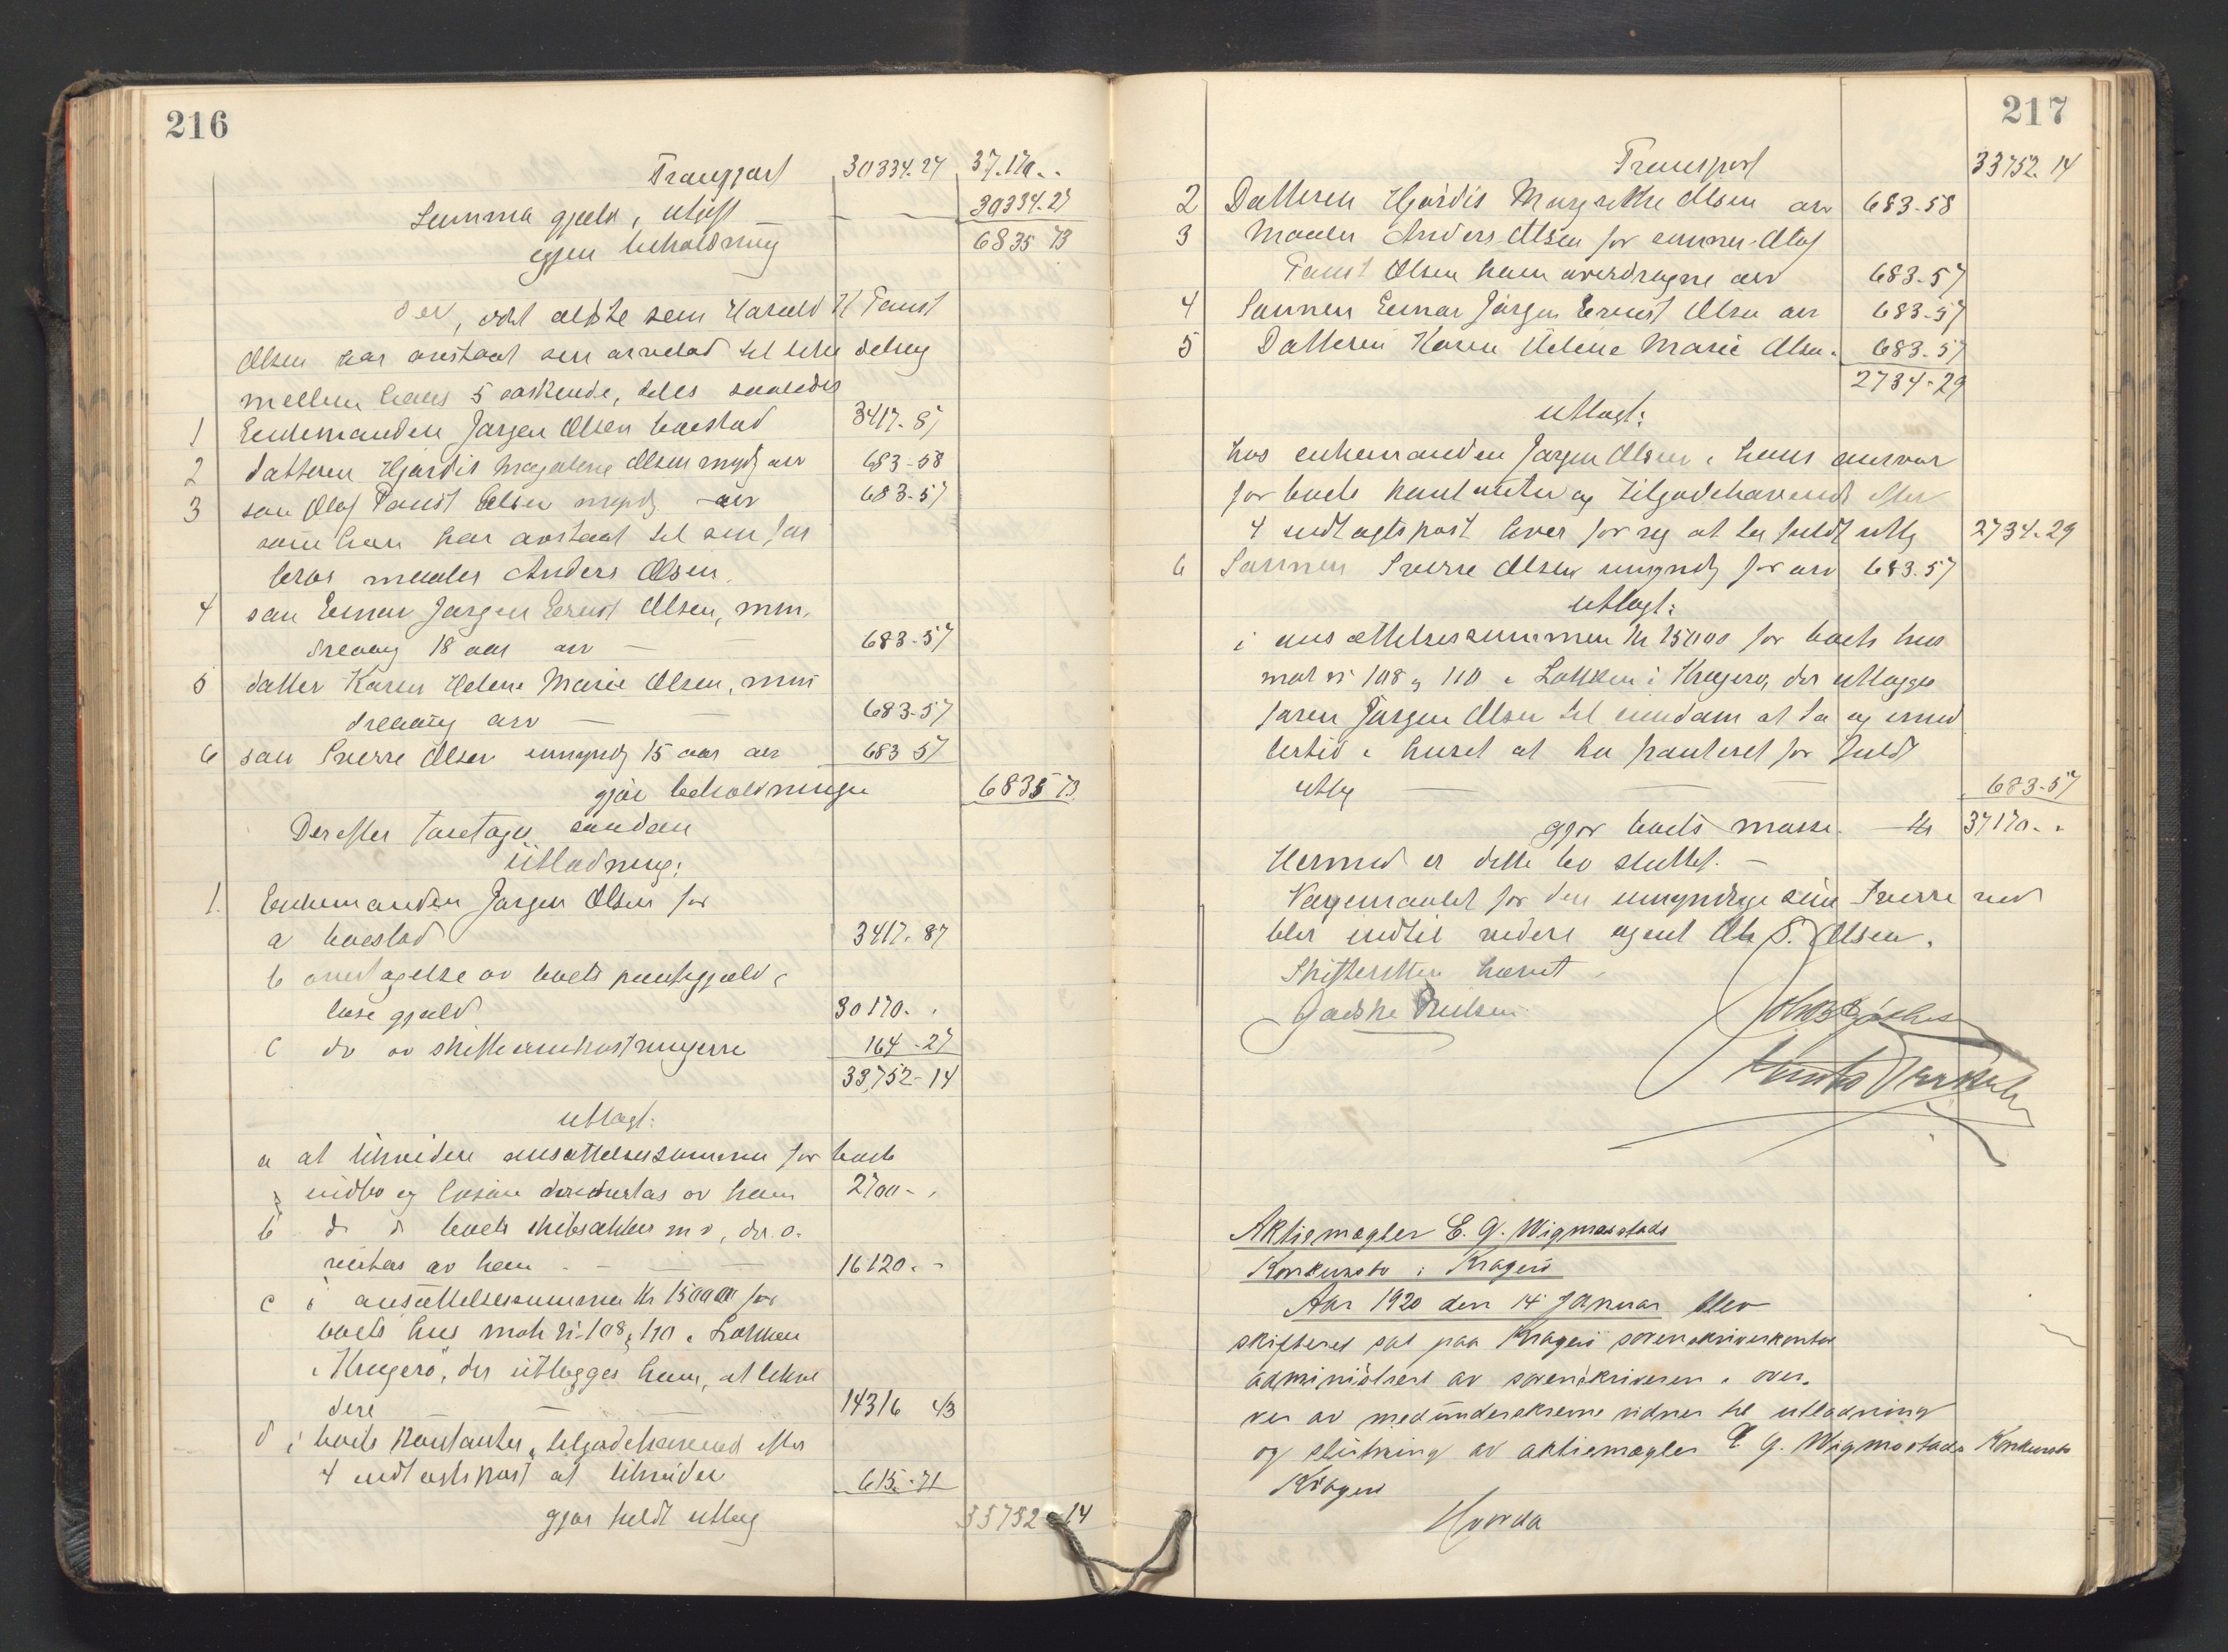 216
Transport 30334.27 37.170..
Summa gjæld, utgift 30334.27
igjen beholdning 6835 73
der, idet ældste søn Harald H Faust
Olsen har avstaat sin arvelod til like deling
mellem hans 5 søskende, deles saaledes
1 Enkemanden Jørgen Olsen boeslod 3417.87
2 datteren Hjørdis Magrethe Olsen myndig arv 683-58
3 søn Olaf Faust Olsen myndig arv 683-57
som han har avstaat til sin far
bror maaler Anders Olsen.
4 søn Einar Jørgen Ernst Olsen, min.
dreaarig 18 aar arv 683-57
5 datter Karen Helene Marie Olsen, min
dreaarig arv 683-57
6 søn Sverre Olsen umyndig 15 aar arv 683 57
gjør beholdningen 6835 73
Derefter foretages saadan
Utlodning:
1. Enkemanden Jørgen Olsen for
a boeslod 3417.87
b overtagelse av boets pantegjæld &
løse gjæld 30170..
c do av skifteomkostningerne 164-27
33,752-14
utlagt:
a at likvidere ansættelsessummen for boets
indbo og løsøre der overtas av ham 2700-.
b do do boets skibsaktier m v, der o-
vertas av ham 16120.-
c i ansættelsessummen Kr 15000 for
boets hus matr no 108 & 110 i Løkken
i Kragerø, der utlægges ham, at likvi
dere 14316 43
d i boets kontanter & tilgodehavende efter
4 indtægtspost at likvidere 615.71
gjør fuldt utlæg 33752 14
217
Transport 33752.14
2 Datteren Hjørdis Magrethe Olsen arv 683-58
3 Maaler Anders Olsen for sønnen Olaf
Faust Olsen ham overdragne arv 683-57
4 Sønnen Einar Jørgen Ernst Olsen arv 683-57
5 Datteren Karen Helene Marie Olsen. 683-57
2734-29
utlagt:
hos enkemanden Jørgen Olsen i hans ansvar
for boets kontanter og tilgodehavende efter
4 indtægtspost hver for sig at ha fuldt utlæg 2734.29
6 Sønnen Sverre Olsen umyndig for arv 683.57
utlagt:
i ansættelsessummen Kr 15000 for boets hus
matr no 108 & 110 i Løkken i Kragerø, der utlægges
faren Jørgen Olsen til eiendom at ha og imid
lertid i huset at ha panteret for fuldt
utlæg 683-57
gjør boets masse. Kr 37170..
Hermed er dette bo sluttet. -
Værgemaalet for den umyndige søn Sverre ved
blir indtil videre agent Ole S. Olsen.
Skifteretten hævet.
Aktiemægler E. G. Wigmostads
Konkursbo i Kragerø
Aar 1920 den 14 Januar blev
skifteret sat paa Kragerø sorenskriverkontor
administrert av sorenskriveren i over.
vær av medunderskrevne vidner til utlodning
og slutning av aktiemægler E G. Wigmostads Konkursbo
Kragerø
Hvorda